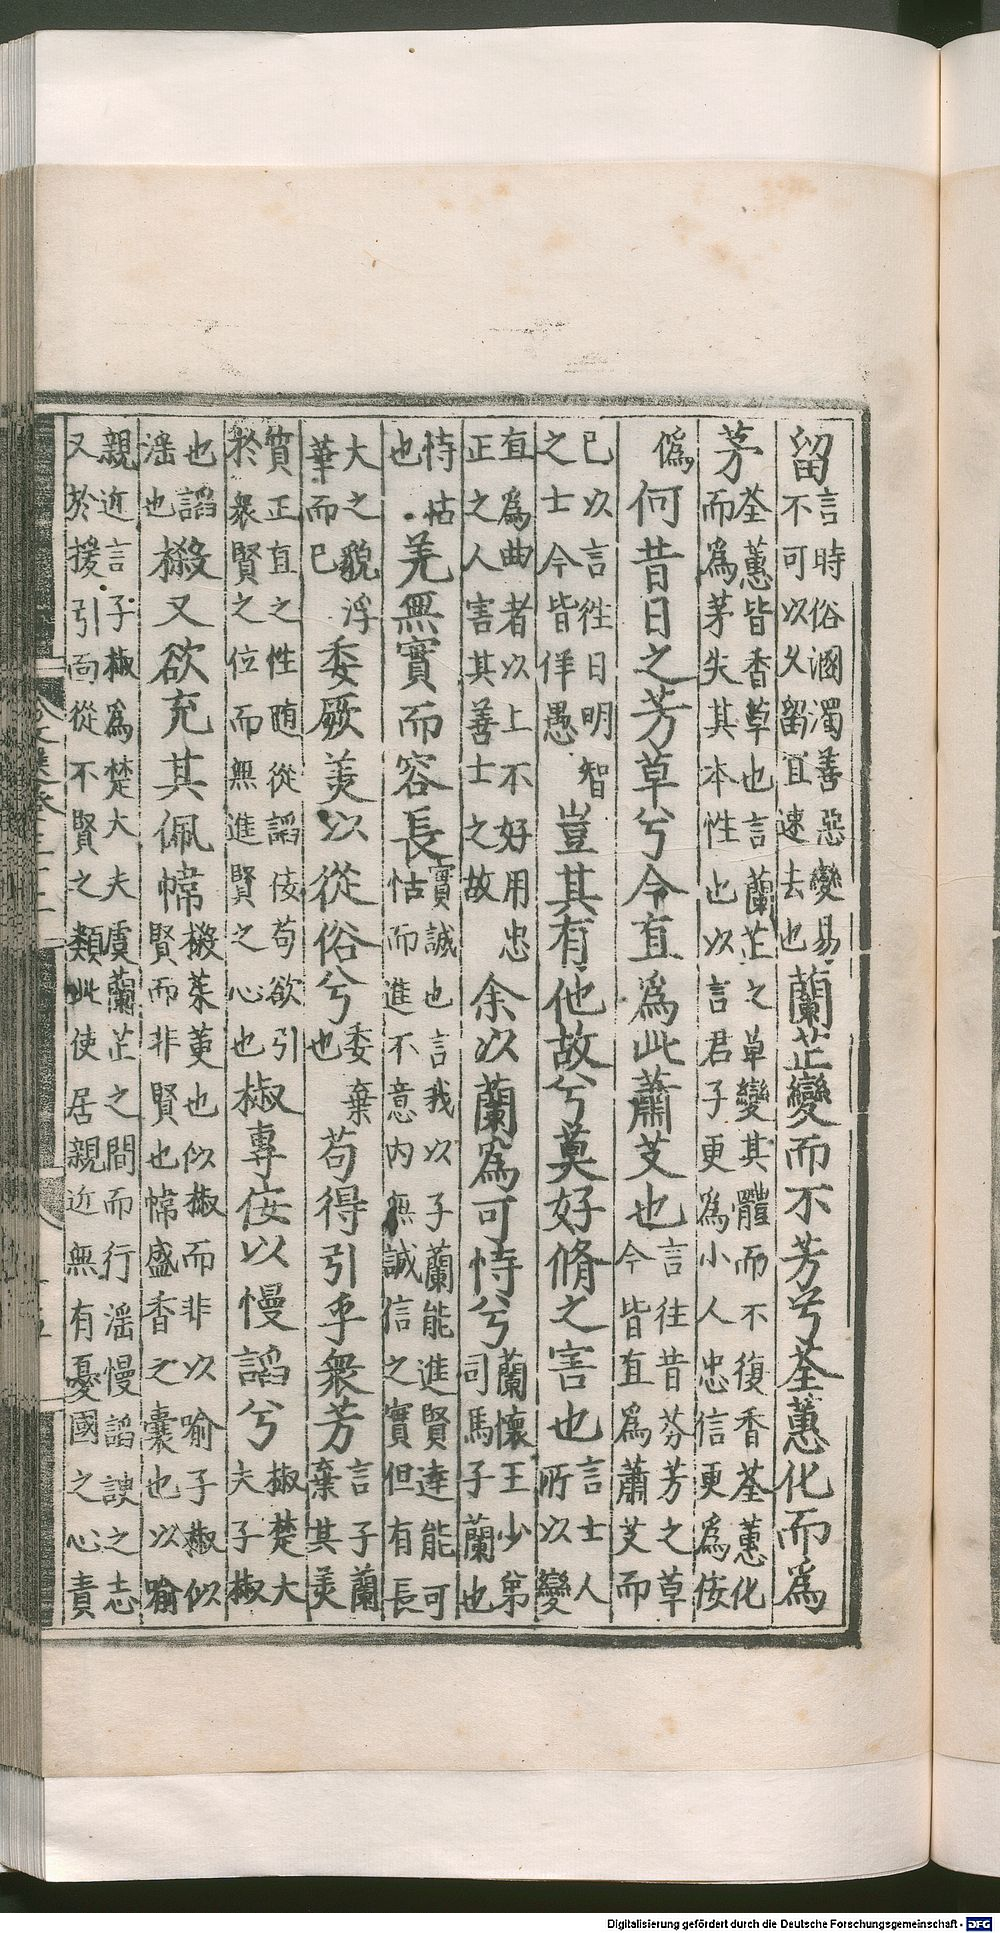 留言時俗溷濁善惡變易不可以久留宜速去也蘭芷變而不芳兮荃蕙化而為
茅荃蕙皆香草也言蘭芷之草變其體而不復香荃蕙化而為茅失其本性也以言君子更為小人忠信更為佞
偽何昔日之芳草兮今直為此蕭艾也言往昔芬芳之草今皆直為蕭艾而
已以言徃日明智之士今皆佯愚豈其有他故兮莫好脩之害也言士人所以變
直為曲者以上不好用忠正之人害其善士之故余以蘭為可恃兮蘭懷王少弟司馬子蘭也
恃怙也羌無實而容長實誠也言我以子蘭能進賢達能可怙而進不意内無誠信之實但有長
大之貌浮華而已委厥美以從俗兮委棄也苟得引乎衆芳言子蘭棄其美
質正直之性随從諂佞苟欲引於衆賢之位而無進賢之心也椒專佞以慢諂兮椒楚大夫子椒
也諂滛也樧又欲充其佩幃樧茱萸也似椒而非以喻子椒似賢而非賢也幃盛香之囊也以喻
親近言子椒為楚大夫處蘭芷之間而行滛慢諂諛之志又於援引面從不賢之類此使居親近無有憂國之心責
Digitalisierung gefördert durch die Deutsche Forschungsgemeinschaft - DFG